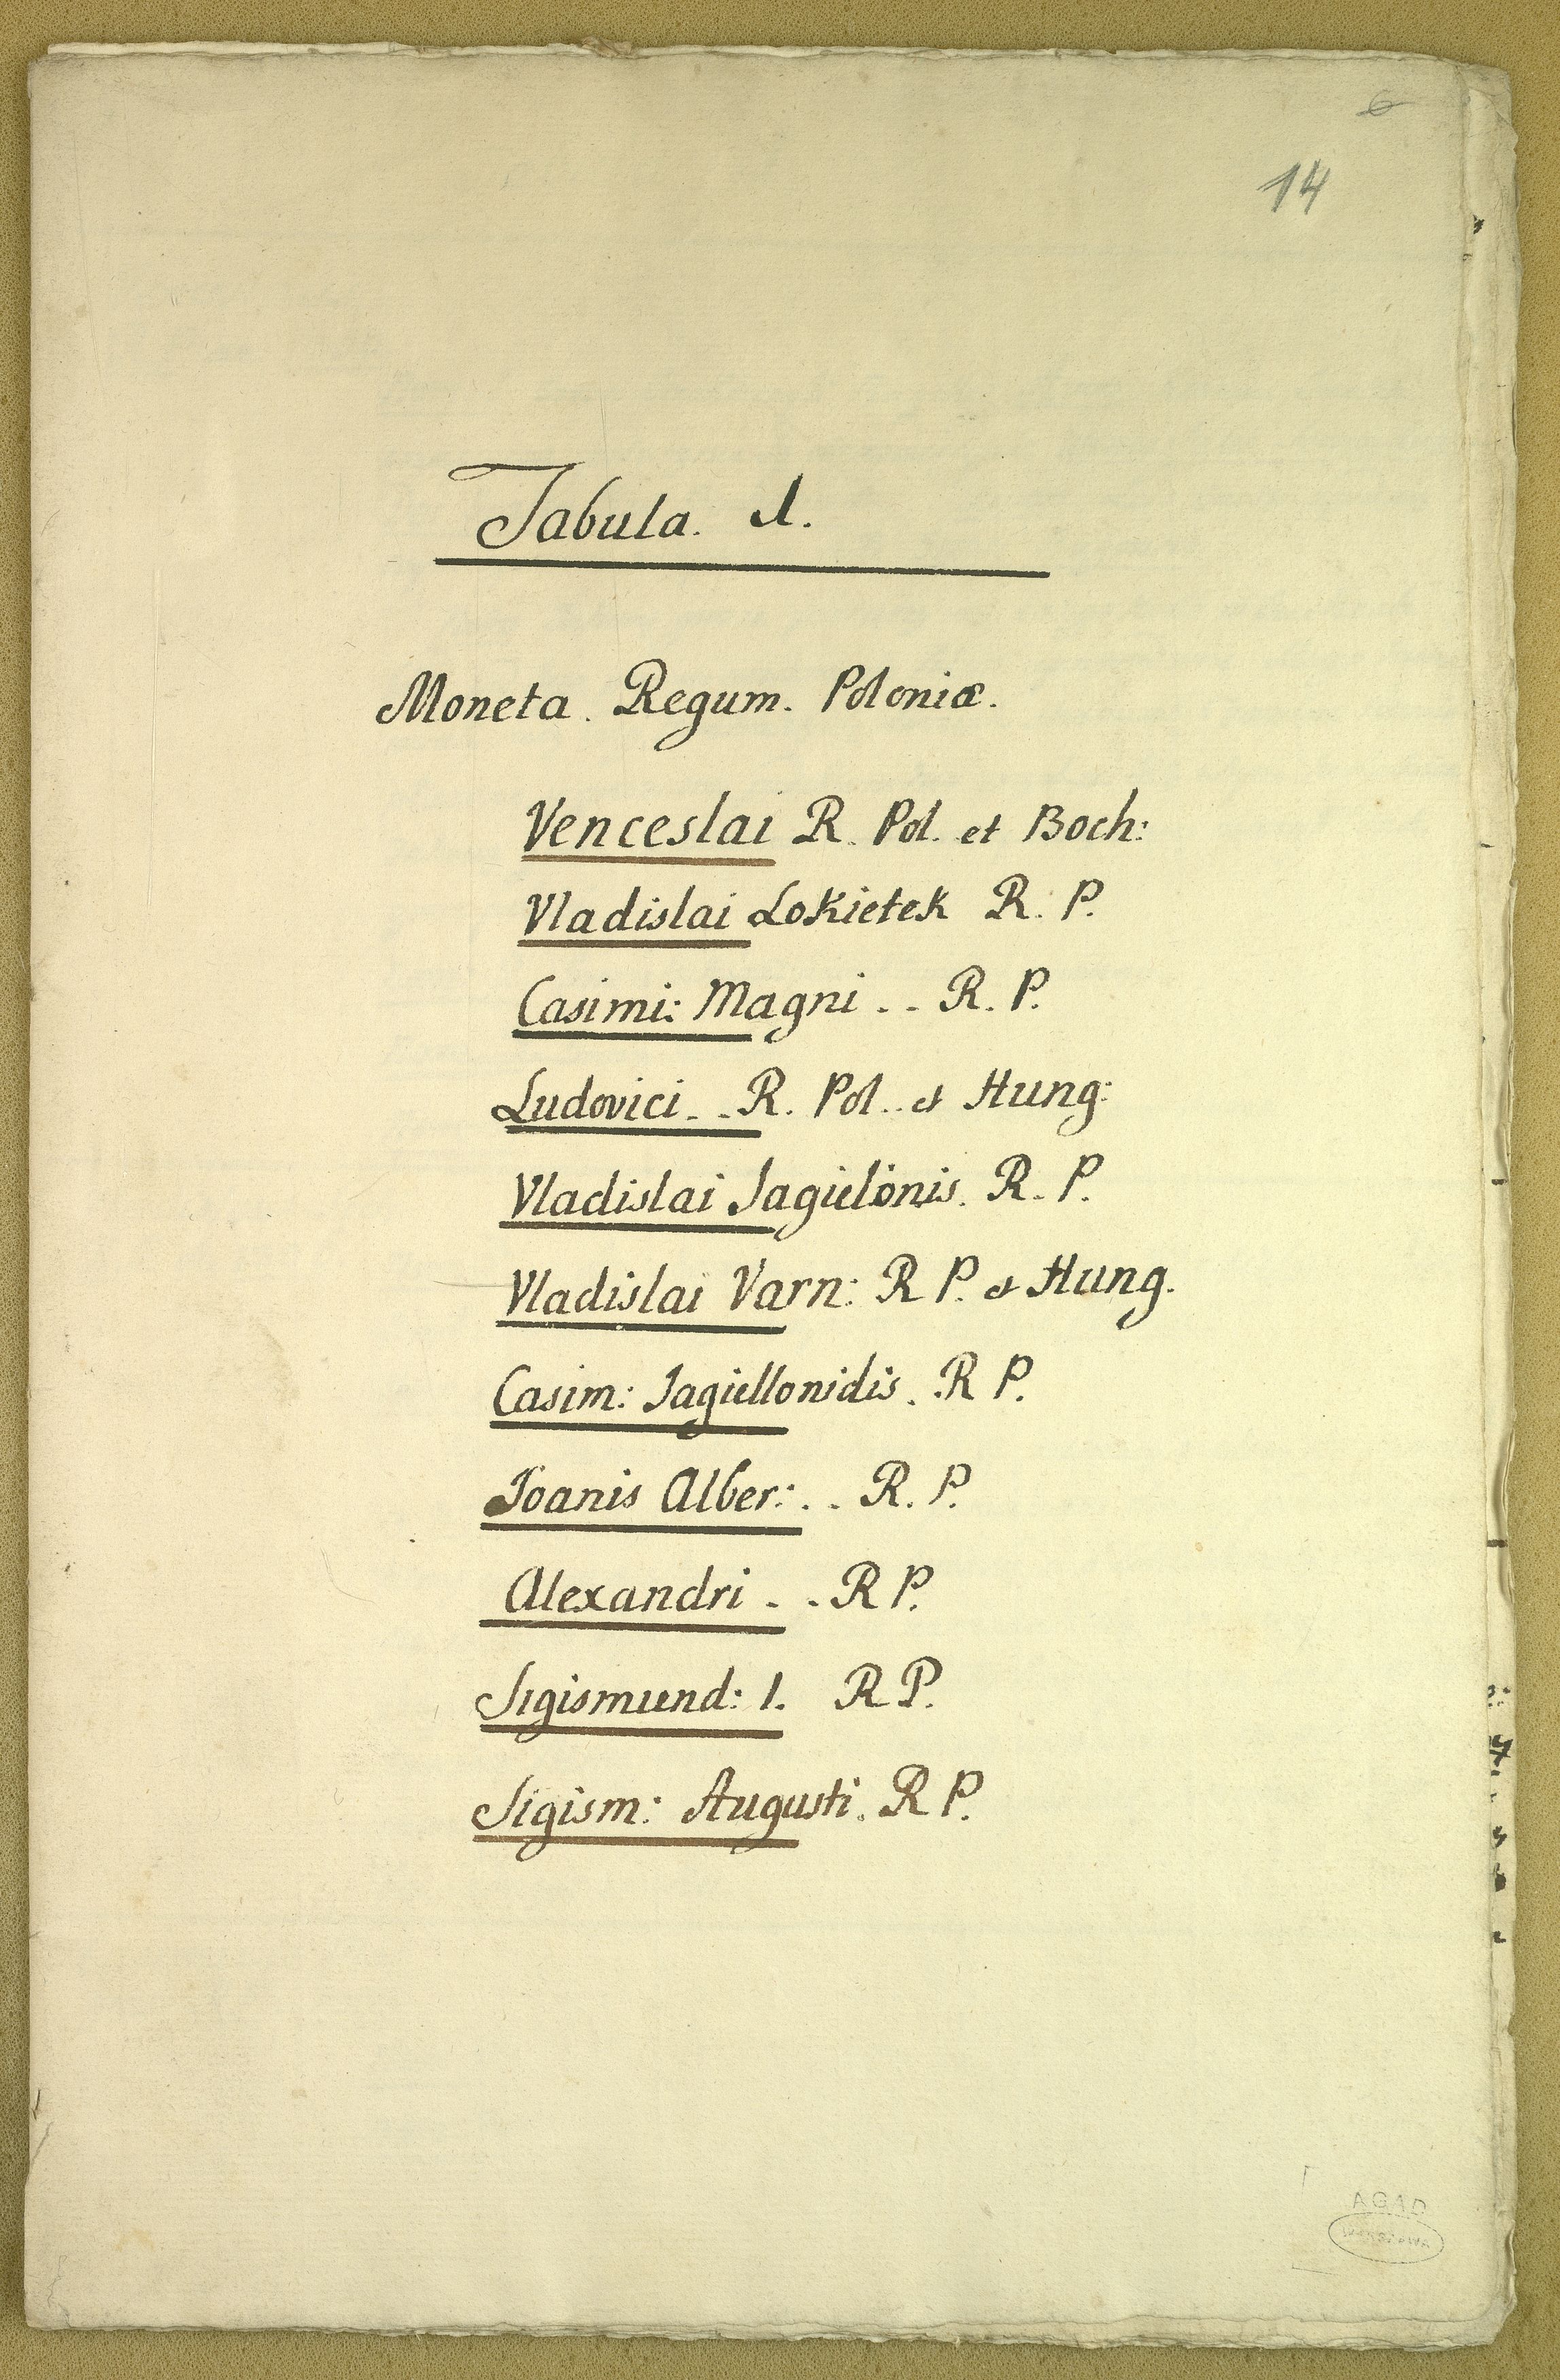 6
14
Tabula. I.
Moneta. Regum. Poloniæ.
Venceslai R. Pol. et Boeh:
Vladislai Lokietek R. P.
Casimi: Magni . . R. P.
Ludovici. . R. Pol. et Hung:
Vladislai Jagielonis. R. P.
Vladislai Varn: R P. et Hung.
Casim: Jagiellonidis. R P.
Joanis Alber: . . R. P.
Alexandri . . R P.
Sigismund: 1. R P.
Sigism: Augusti. R P.
AGAD
WARSZAWA